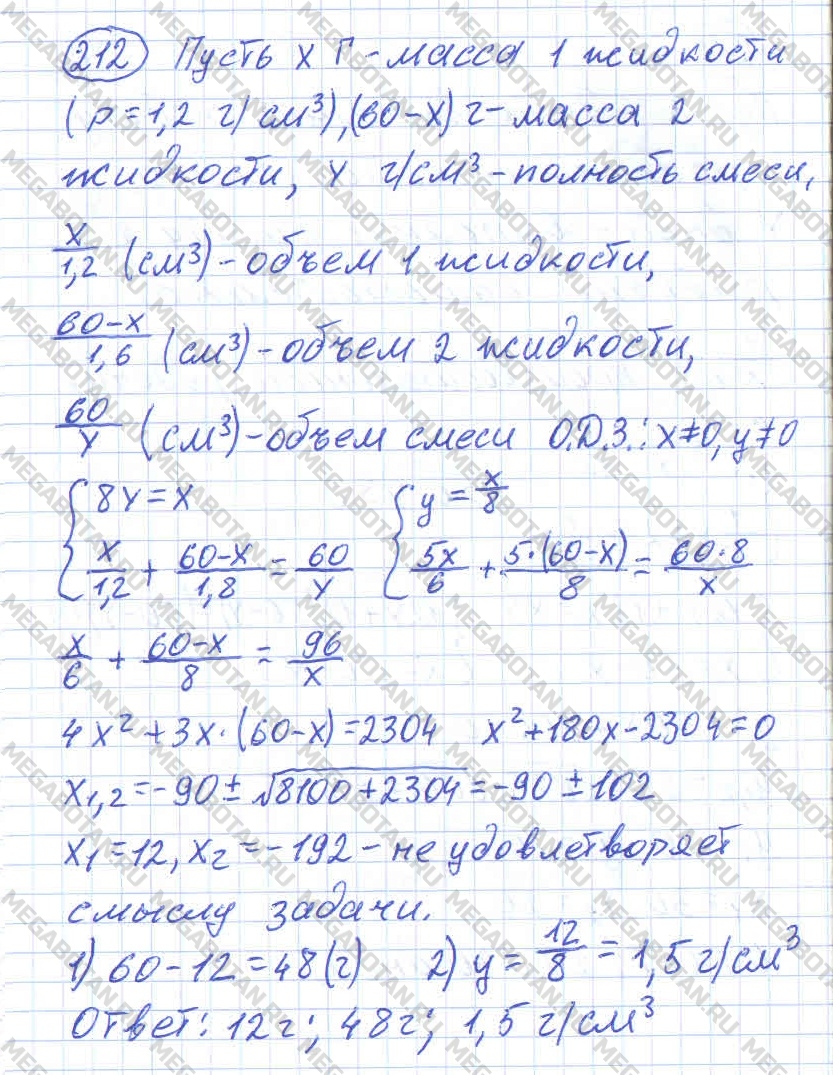 212 Пусть х г - масса 1 жидкости
(ρ = 1,2 г/см³), (60-х) г - масса 2
жидкости, y г/см³ - полность смеси,
x/1,2 (см³) - объем 1 жидкости,
60-x/1,6 (см³) - объем 2 жидкости,
60/y (см³) - объем смеси О.Д.З.: x≠0, y≠0
{ 8y = x { y = x/8
x/1,2 + 60-x/1,8 = 60/y 5x/6 + 5·(60-x)/8 = 60·8/x
x/6 + 60-x/8 = 96/x
4x² + 3x·(60-x) = 2304 x² + 180x - 2304 = 0
x1,2 = -90 ± √8100+2304 = -90 ± 102
x1 = 12, x2 = -192 - не удовлетворяет
смыслу задачи.
1) 60 - 12 = 48 (г) 2) y = 12/8 = 1,5 г/см³
Ответ: 12 г; 48 г; 1,5 г/см³
MEGABOTAN.RU